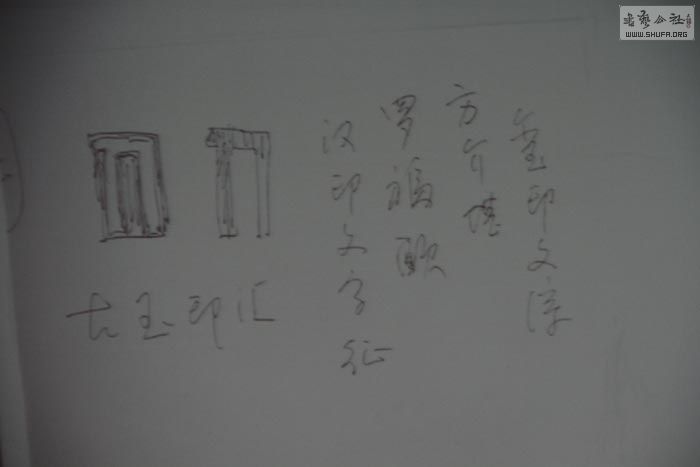 玺印文综
方介堪
罗福颐
汉印文字征
古玉印汇
书艺公社
WWW.SHUFA.ORG